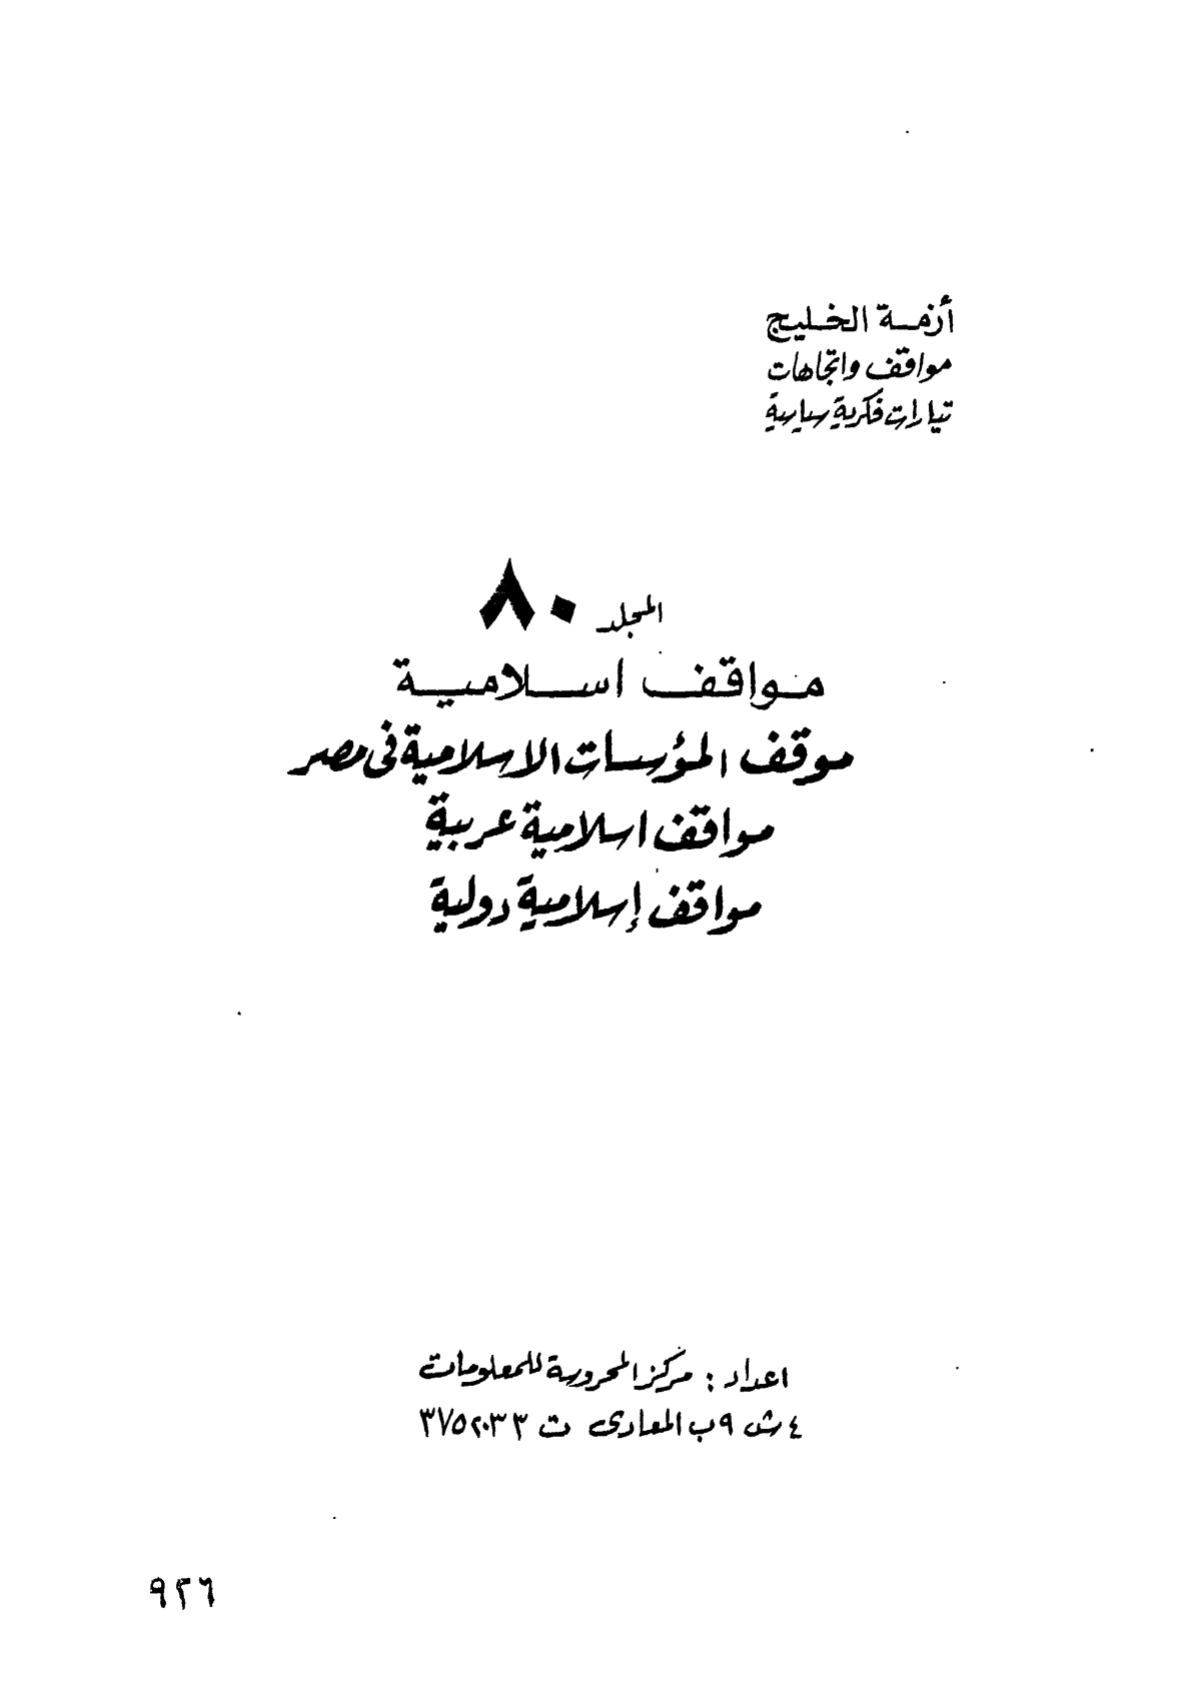 أزمة الخليج
مواقف واتجاهات
تيارات فكرية سياسية
المجلد ٨٠
مواقف اسلامية
موقف المؤسسات الاسلامية فى مصر
مواقف اسلامية عربية
مواقف إسلامية دولية
اعداد : مركز المحروسة للمعلومات
٤ ش ٩ ب المعادى ت ٣٧٥٢٠٣٣
٩٢٦